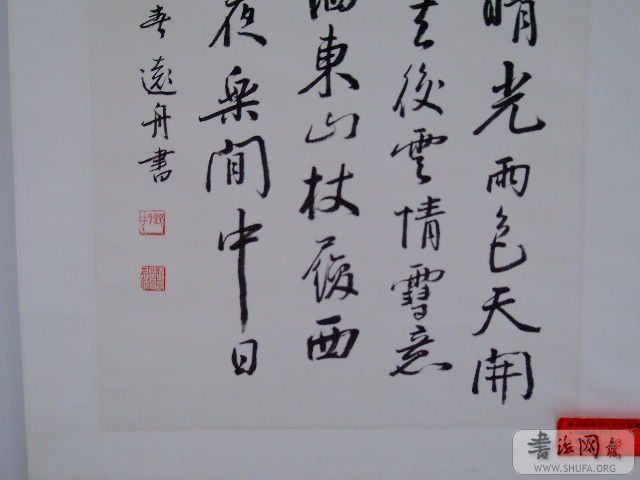 晴光雨色天開
去後雲情雪意
酒東山杖履西
夜樂閒中日
春遠舟書
書法网
WWW.SHUFA.ORG